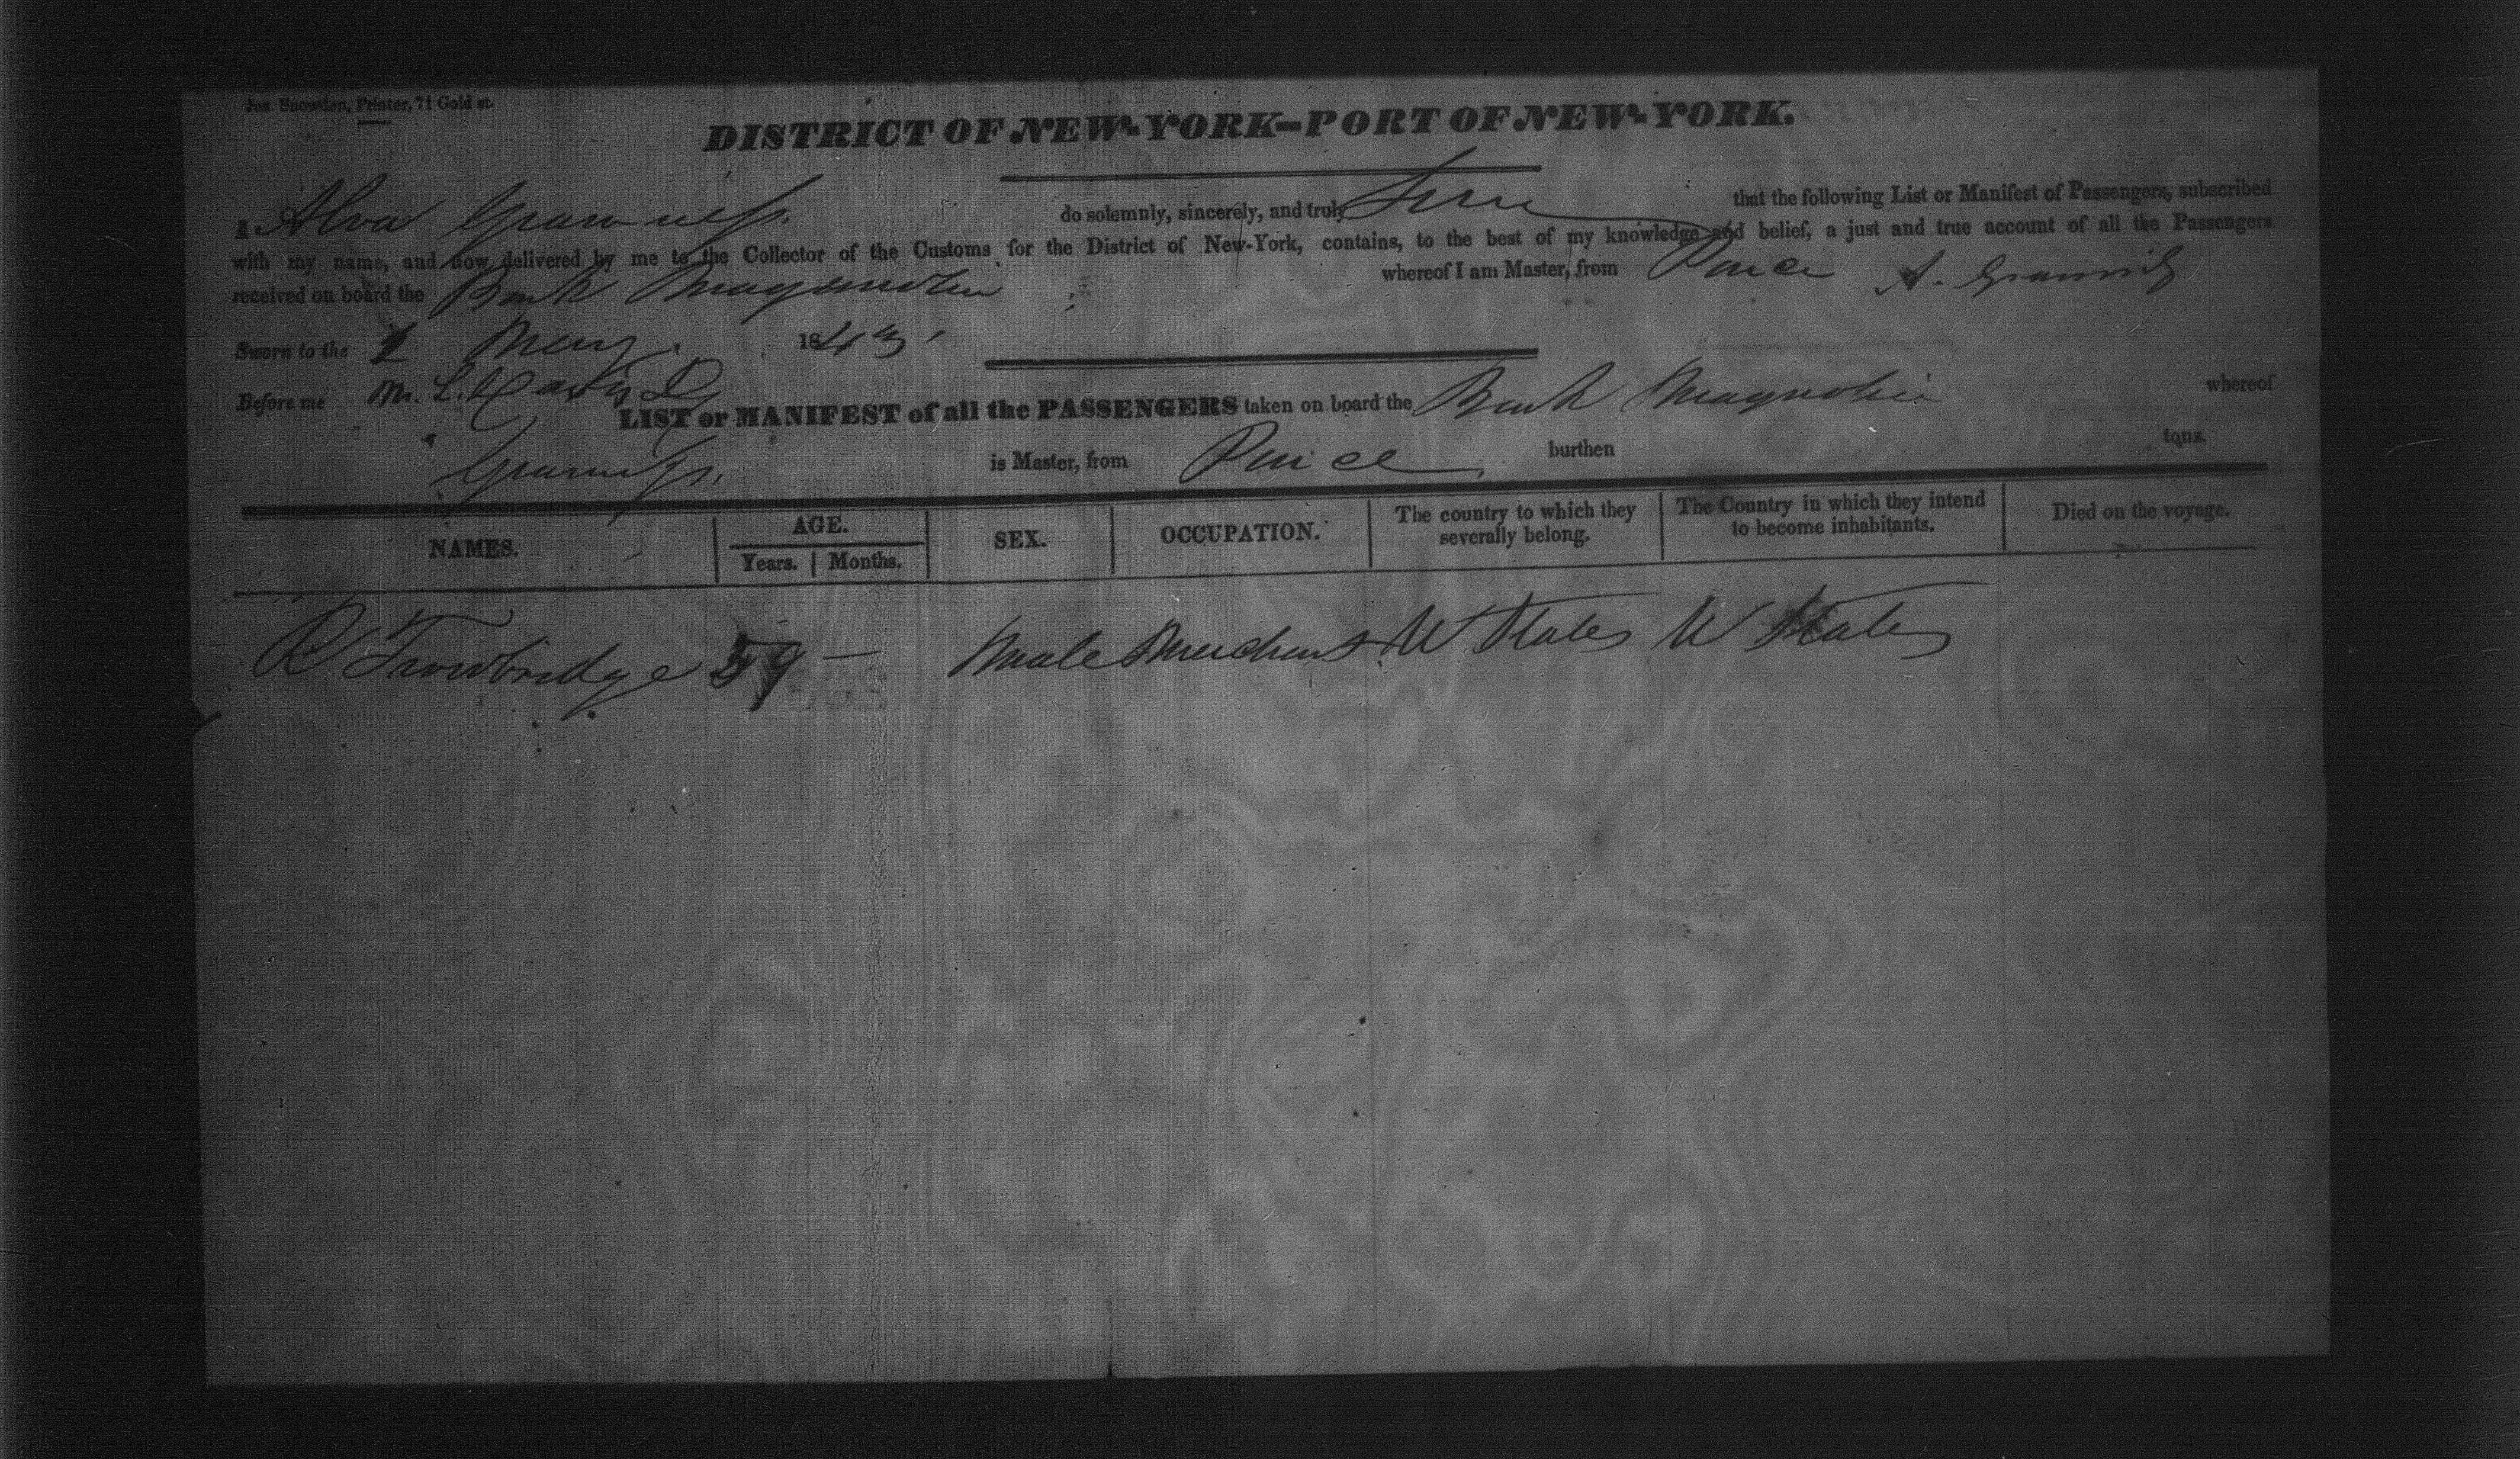 Jos. Snowden, Printer, 71 Gold st.
DISTRICT OF NEW-YORK—PORT OF NEW-YORK.
I Alva do solemnly, sincerely, and truly that the following List or Manifest of Passengers, subscribed
with my name, and now delivered by me to the Collector of the Customs for the District of New-York, contains, to the best of my knowledge and belief, a just and true account of all the Passengers
received on board the Bark whereof I am Master, from Ponce A.
Sworn to the 1 May 1843.
Before me
LIST or MANIFEST of all the PASSENGERS taken on board the Bark Magnolia whereof
is Master, from Ponce burthen tons.
NAMES. AGE. SEX. OCCUPATION. The country to which they severally belong. The Country in which they intend to become inhabitants. Died on the voyage.
Years. Months.
R Trowbridge 39 — Male Merchant U States U States